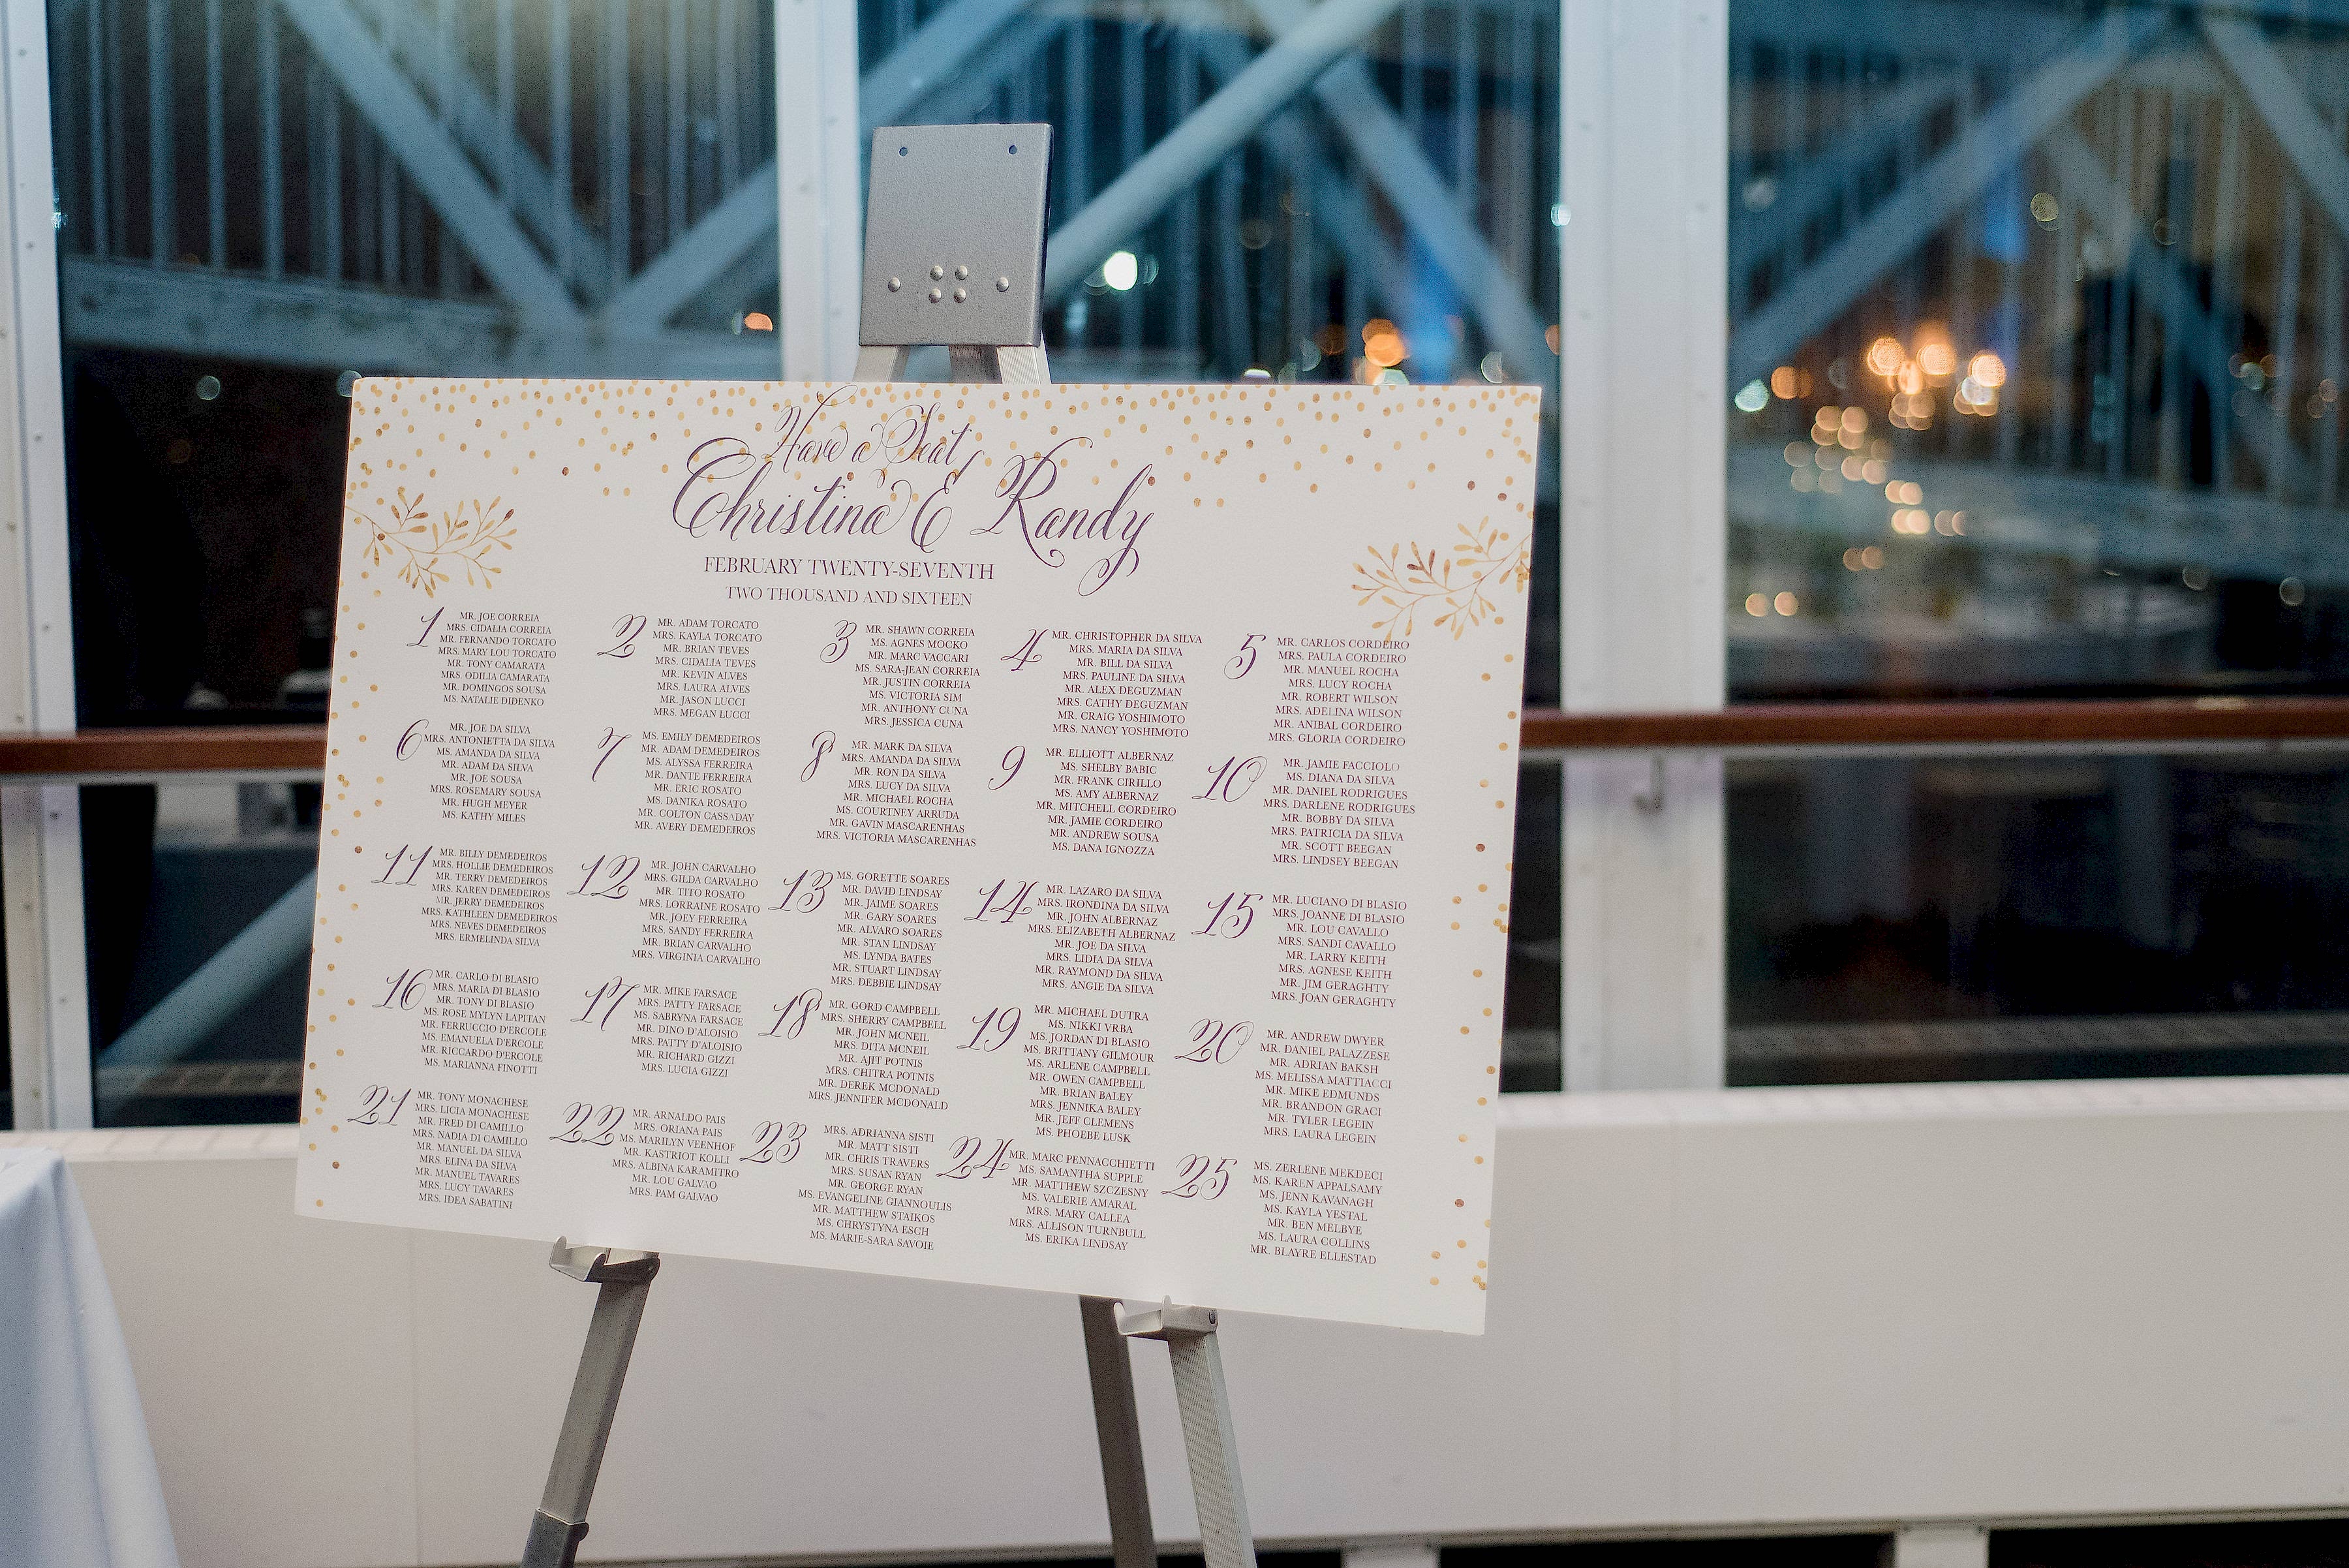 Have a Seat
Christina & Randy
FEBRUARY TWENTY-SEVENTH
TWO THOUSAND AND SIXTEEN
1
MR. JOE CORREIA
MRS. CIDALIA CORREIA
MR. FERNANDO TORCATO
MRS. MARY LOU TORCATO
MR. TONY CAMARATA
MRS. ODILIA CAMARATA
MR. DOMINGOS SOUSA
MS. NATALIE DIDENKO
2
MR. ADAM TORCATO
MRS. KAYLA TORCATO
MR. BRIAN TEVES
MRS. CIDALIA TEVES
MR. KEVIN ALVES
MRS. LAURA ALVES
MR. JASON LUCCI
MRS. MEGAN LUCCI
3
MR. SHAWN CORREIA
MS. AGNES MOCKO
MR. MARC VACCARI
MS. SARA-JEAN CORREIA
MR. JUSTIN CORREIA
MS. VICTORIA SIM
MR. ANTHONY CUNA
MRS. JESSICA CUNA
4
MR. CHRISTOPHER DA SILVA
MRS. MARIA DA SILVA
MR. BILL DA SILVA
MRS. PAULINE DA SILVA
MR. ALEX DEGUZMAN
MRS. CATHY DEGUZMAN
MR. CRAIG YOSHIMOTO
MRS. NANCY YOSHIMOTO
5
MR. CARLOS CORDEIRO
MRS. PAULA CORDEIRO
MR. MANUEL ROCHA
MRS. LUCY ROCHA
MR. ROBERT WILSON
MRS. ADELINA WILSON
MR. ANIBAL CORDEIRO
MRS. GLORIA CORDEIRO
6
MR. JOE DA SILVA
MRS. ANTONIETTA DA SILVA
MS. AMANDA DA SILVA
MR. ADAM DA SILVA
MR. JOE SOUSA
MRS. ROSEMARY SOUSA
MR. HUGH MEYER
MS. KATHY MILES
7
MS. EMILY DEMEDEIROS
MR. ADAM DEMEDEIROS
MS. ALYSSA FERREIRA
MR. DANTE FERREIRA
MR. ERIC ROSATO
MS. DANIKA ROSATO
MR. COLTON CASSADAY
MR. AVERY DEMEDEIROS
8
MR. MARK DA SILVA
MRS. AMANDA DA SILVA
MR. RON DA SILVA
MRS. LUCY DA SILVA
MR. MICHAEL ROCHA
MS. COURTNEY ARRUDA
MR. GAVIN MASCARENHAS
MRS. VICTORIA MASCARENHAS
9
MR. ELLIOTT ALBERNAZ
MS. SHELBY BABIC
MR. FRANK CIRILLO
MS. AMY ALBERNAZ
MR. MITCHELL CORDEIRO
MR. JAMIE CORDEIRO
MR. ANDREW SOUSA
MS. DANA IGNOZZA
10
MR. JAMIE FACCIOLO
MS. DIANA DA SILVA
MR. DANIEL RODRIGUES
MRS. DARLENE RODRIGUES
MR. BOBBY DA SILVA
MRS. PATRICIA DA SILVA
MR. SCOTT BEEGAN
MRS. LINDSEY BEEGAN
11
MR. BILLY DEMEDEIROS
MRS. HOLLIE DEMEDEIROS
MR. TERRY DEMEDEIROS
MRS. KAREN DEMEDEIROS
MR. JERRY DEMEDEIROS
MRS. KATHLEEN DEMEDEIROS
MRS. NEVES DEMEDEIROS
MRS. ERMELINDA SILVA
12
MR. JOHN CARVALHO
MRS. GILDA CARVALHO
MR. TITO ROSATO
MRS. LORRAINE ROSATO
MR. JOEY FERREIRA
MRS. SANDY FERREIRA
MR. BRIAN CARVALHO
MRS. VIRGINIA CARVALHO
13
MS. GORETTE SOARES
MR. DAVID LINDSAY
MR. JAIME SOARES
MR. GARY SOARES
MR. ALVARO SOARES
MR. STAN LINDSAY
MS. LYNDA BATES
MR. STUART LINDSAY
MRS. DEBBIE LINDSAY
14
MR. LAZARO DA SILVA
MRS. IRONDINA DA SILVA
MR. JOHN ALBERNAZ
MRS. ELIZABETH ALBERNAZ
MR. JOE DA SILVA
MRS. LIDIA DA SILVA
MR. RAYMOND DA SILVA
MRS. ANGIE DA SILVA
15
MR. LUCIANO DI BLASIO
MRS. JOANNE DI BLASIO
MR. LOU CAVALLO
MRS. SANDI CAVALLO
MR. LARRY KEITH
MRS. AGNESE KEITH
MR. JIM GERAGHTY
MRS. JOAN GERAGHTY
16
MR. CARLO DI BLASIO
MRS. MARIA DI BLASIO
MR. TONY DI BLASIO
MS. ROSE MYLYN LAPITAN
MR. FERRUCCIO D'ERCOLE
MS. EMANUELA D'ERCOLE
MR. RICCARDO D'ERCOLE
MS. MARIANNA FINOTTI
17
MR. MIKE FARSACE
MRS. PATTY FARSACE
MS. SABRYNA FARSACE
MR. DINO D'ALOISIO
MRS. PATTY D'ALOISIO
MR. RICHARD GIZZI
MRS. LUCIA GIZZI
18
MR. GORD CAMPBELL
MRS. SHERRY CAMPBELL
MR. JOHN MCNEIL
MRS. DITA MCNEIL
MR. AJIT POTNIS
MRS. CHITRA POTNIS
MR. DEREK MCDONALD
MRS. JENNIFER MCDONALD
19
MR. MICHAEL DUTRA
MS. NIKKI VRBA
MS. JORDAN DI BLASIO
MS. BRITTANY GILMOUR
MS. ARLENE CAMPBELL
MR. OWEN CAMPBELL
MR. BRIAN BALEY
MRS. JENNIKA BALEY
MR. JEFF CLEMENS
MS. PHOEBE LUSK
20
MR. ANDREW DWYER
MR. DANIEL PALAZZESE
MR. ADRIAN BAKSH
MS. MELISSA MATTIACCI
MR. MIKE EDMUNDS
MR. BRANDON GRACI
MR. TYLER LEGEIN
MRS. LAURA LEGEIN
21
MR. TONY MONACHESE
MRS. LICIA MONACHESE
MR. FRED DI CAMILLO
MRS. NADIA DI CAMILLO
MR. MANUEL DA SILVA
MRS. ELINA DA SILVA
MR. MANUEL TAVARES
MRS. LUCY TAVARES
MRS. IDEA SABATINI
22
MR. ARNALDO PAIS
MRS. ORIANA PAIS
MS. MARILYN VEENHOF
MR. KASTRIOT KOLLI
MRS. ALBINA KARAMITRO
MR. LOU GALVAO
MRS. PAM GALVAO
23
MRS. ADRIANNA SISTI
MR. MATT SISTI
MR. CHRIS TRAVERS
MRS. SUSAN RYAN
MR. GEORGE RYAN
MS. EVANGELINE GIANNOULIS
MR. MATTHEW STAIKOS
MS. CHRYSTYNA ESCH
MS. MARIE-SARA SAVOIE
24
MR. MARC PENNACCHIETTI
MS. SAMANTHA SUPPLE
MR. MATTHEW SZCZESNY
MS. VALERIE AMARAL
MRS. MARY CALLEA
MRS. ALLISON TURNBULL
MS. ERIKA LINDSAY
25
MS. ZERLENE MEKDECI
MS. KAREN APPALSAMY
MS. JENN KAVANAGH
MS. KAYLA YESTAL
MR. BEN MELBYE
MS. LAURA COLLINS
MR. BLAYRE ELLESTAD